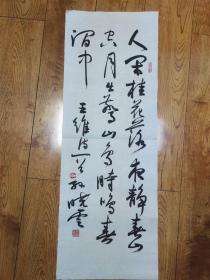 人闲桂花落夜静春山
空月出惊山鸟时鸣春
涧中 王维诗一首 孙晓云